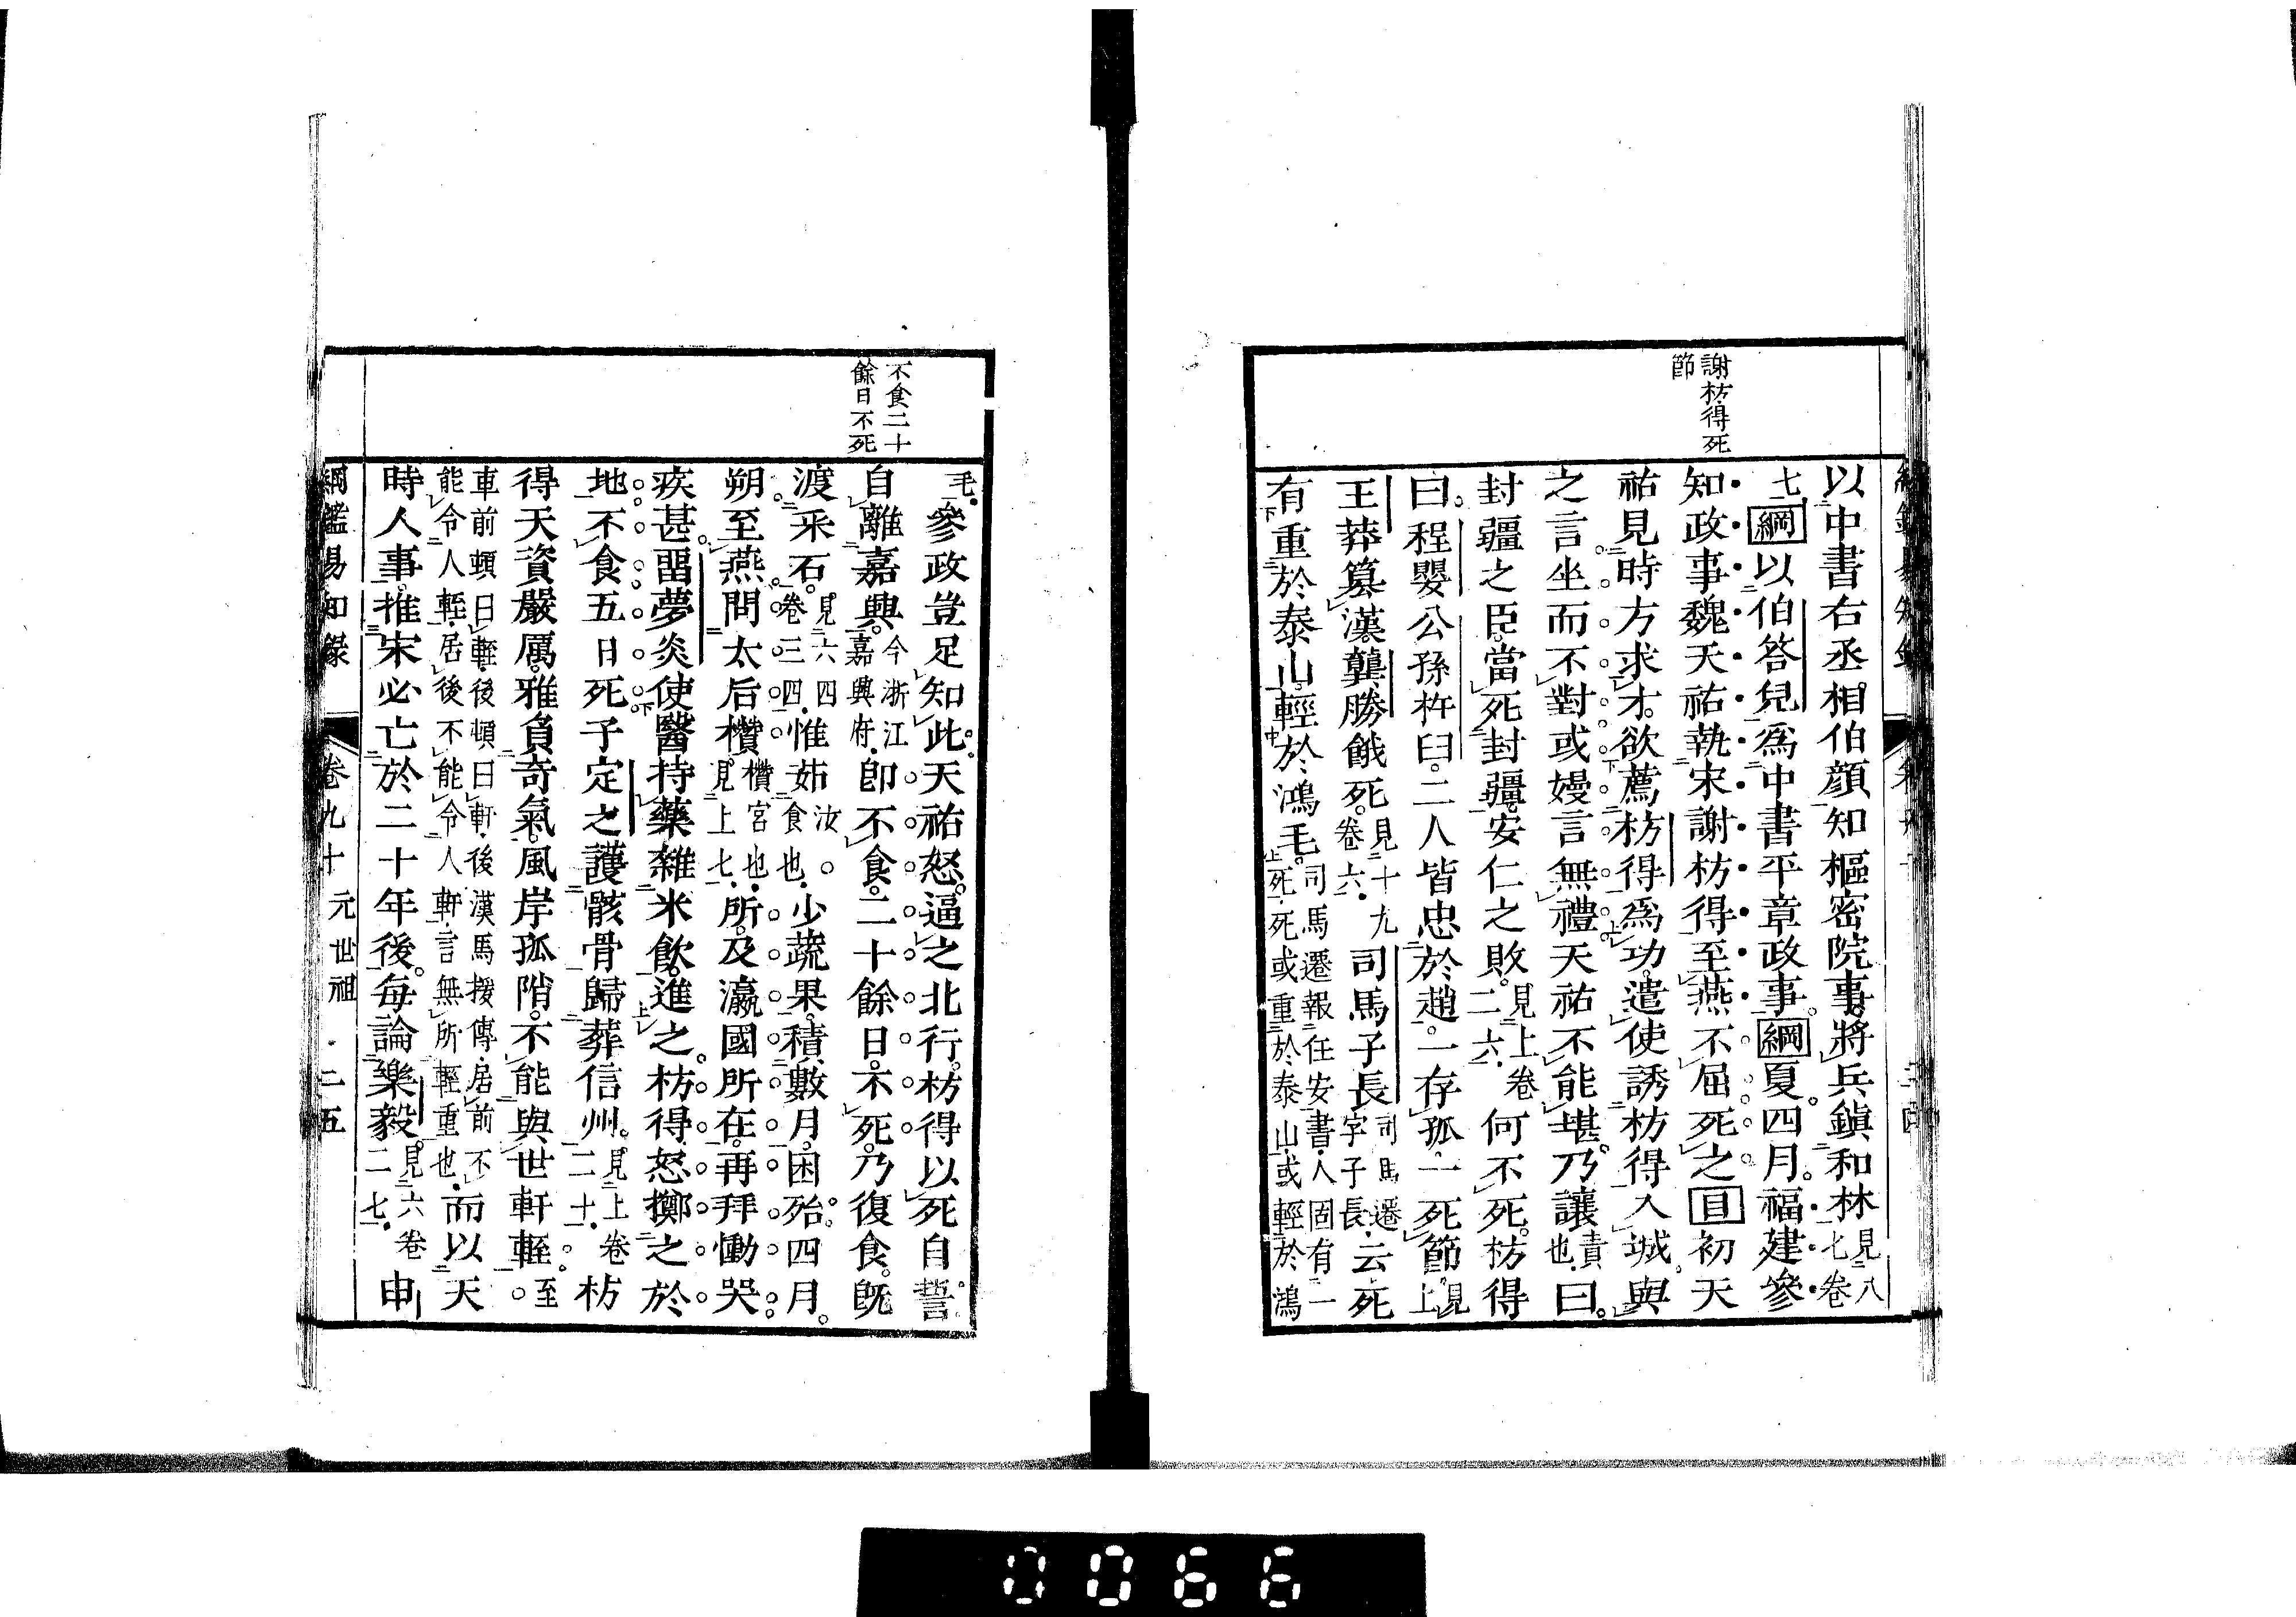 謝枋得死
節
以中書右丞相伯顏知樞密院事將兵鎭和林見八卷
七綱以伯答兒爲中書平章政事綱夏四月福建參
知政事魏天祐執宋謝枋得至燕不屈死之目初天
祐見時方求才欲薦枋得爲功遣使誘枋得入城與
之言坐而不對或嫚言無禮天祐不能堪乃讓責也曰
封疆之臣當死封疆安仁之敗見上卷二六何不死枋得
曰程嬰公孫杵臼二人皆忠於趙一存孤一死節見上
王莽簒漢龔勝餓死見十九卷六司馬子長司馬遷字子長云死
有重於泰山輕於鴻毛司馬遷報任安書人固有一死死或重於泰山或輕於鴻
不食二十
餘日不死
毛參政豈足知此天祐怒逼之北行枋得以死自誓
自離嘉興今浙江嘉興府卽不食二十餘日不死乃復食旣
渡采石見六四卷三四惟茹汝食也少蔬果積數月困殆四月
朔至燕問太后欑欑宮也見上七所及瀛國所在再拜慟哭
疾甚畱夢炎使醫持藥雜米飮進之枋得怒擲之於
地不食五日死子定之護骸骨歸葬信州見上卷二十枋
得天資嚴厲雅負奇氣風岸孤陗不能與世軒輊至
車前頓曰輊後頓曰軒後漢馬援傳居前不能令人輊居後不能令人軒言無所輕重也而以天
時人事推宋必亡於二十年後每論樂毅見六卷二七申
綱鑑易知錄 卷九十 元世祖 二五